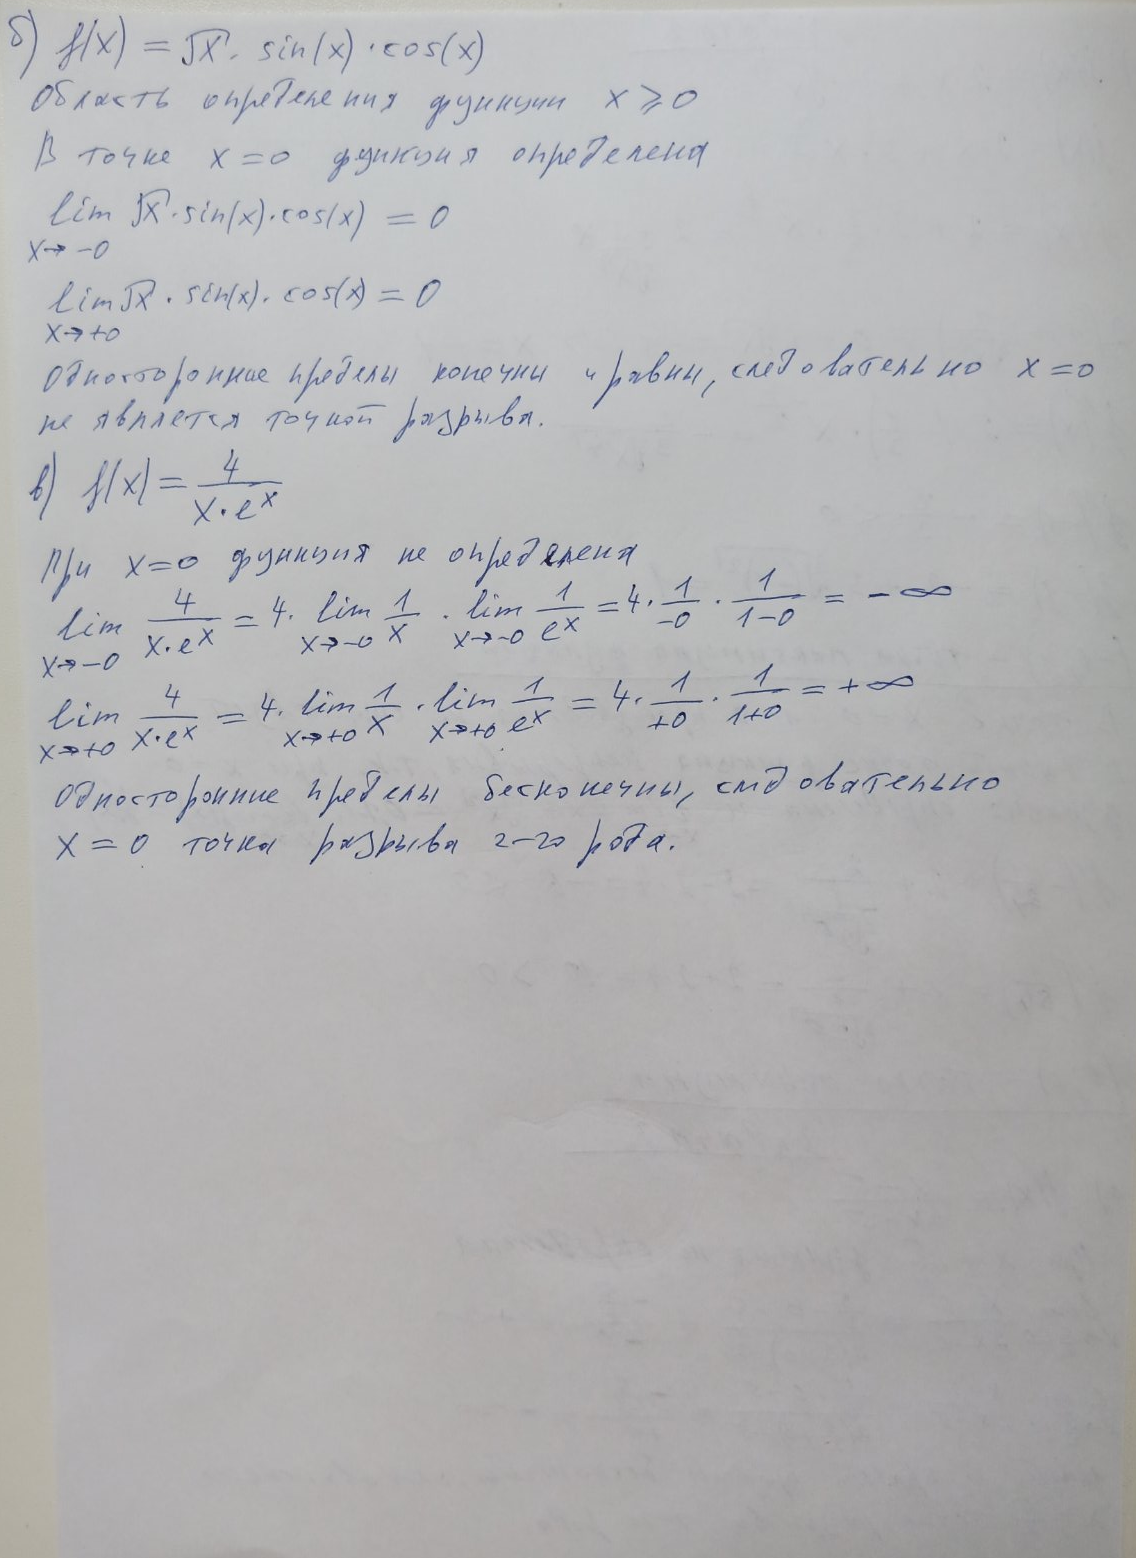 б) f(x) = √x · sin(x) · cos(x)
Область определения функции x ⩾ 0
В точке x = 0 функция определена
lim √x · sin(x) · cos(x) = 0
x→-0
lim √x · sin(x) · cos(x) = 0
x→+0
Односторонние пределы конечны и равны, следовательно x = 0
не является точкой разрыва.
в) f(x) = 4/(x · e^x)
При x = 0 функция не определена
lim 4/(x · e^x) = 4 · lim 1/x · lim 1/e^x = 4 · 1/-0 · 1/(1-0) = -∞
x→-0 x→-0 x→-0
lim 4/(x · e^x) = 4 · lim 1/x · lim 1/e^x = 4 · 1/+0 · 1/(1+0) = +∞
x→+0 x→+0 x→+0
Односторонние пределы бесконечны, следовательно
x = 0 точка разрыва 2-го рода.